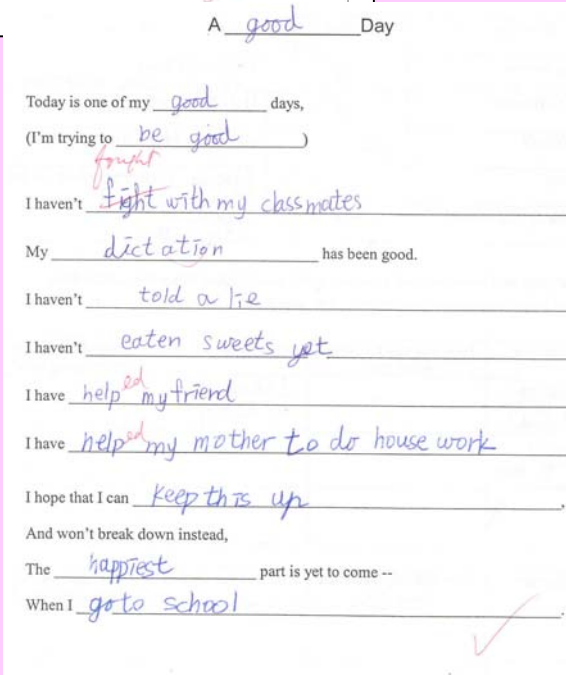 A good Day
Today is one of my good days,
(I'm trying to be good )
fought
I haven't fight with my classmates
My dictation has been good.
I haven't told a lie
I haven't eaten sweets yet
I have helped my friend
I have helped my mother to do house work
I hope that I can keep this up,
And won't break down instead,
The happiest part is yet to come --
When I go to school.